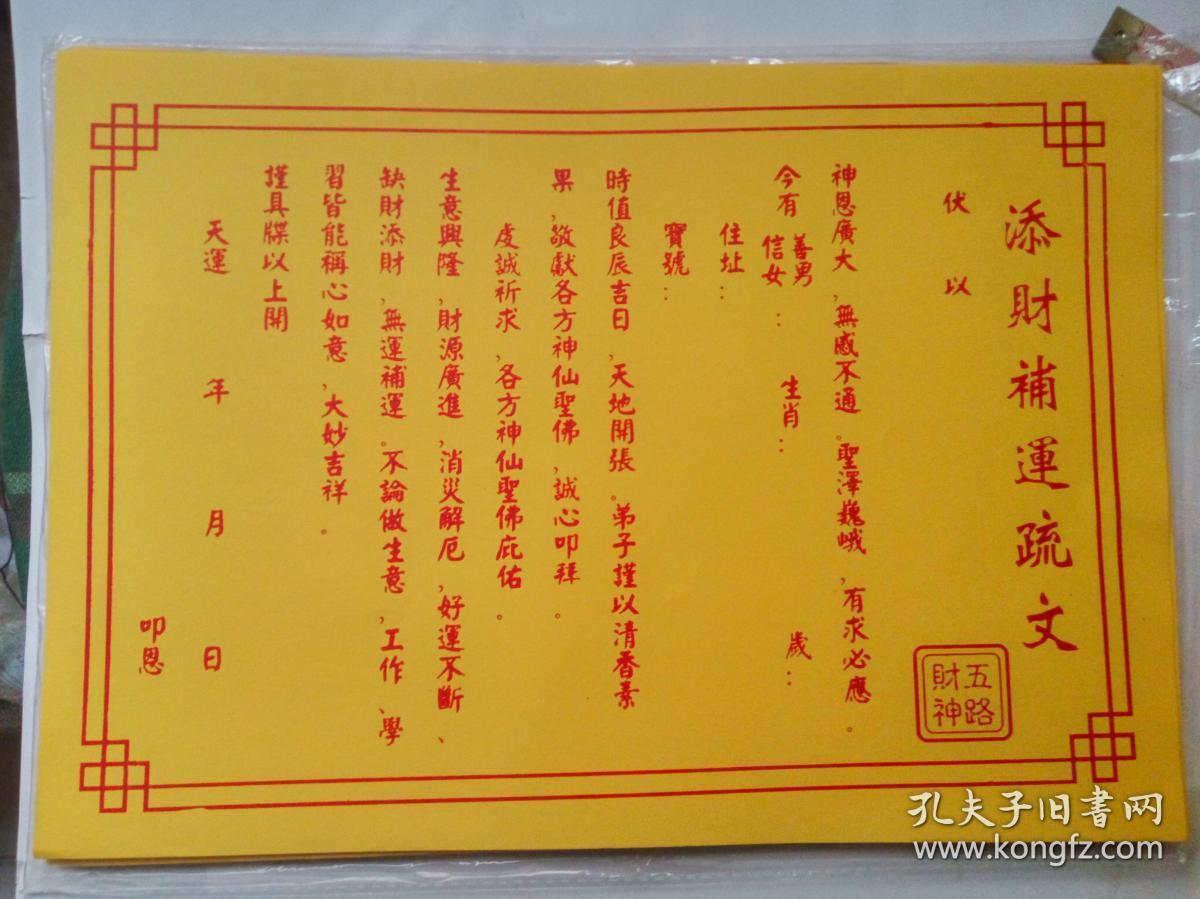 添財補運疏文
五路
財神
伏以
神恩廣大,無感不通。聖澤巍峨,有求必應。
今有 善男 信女: 生肖: 歲:
住址:
寶號:
時值良辰吉日,天地開張。弟子謹以清香素
果,敬獻各方神仙聖佛,誠心叩拜。
虔誠祈求,各方神仙聖佛庇佑。
生意興隆,財源廣進,消災解厄,好運不斷、
缺財添財,無運補運。不論做生意,工作、學
習皆能稱心如意,大妙吉祥。
謹具牒以上開
天運 年 月 日
叩恩
孔夫子旧书网
www.kongfz.com